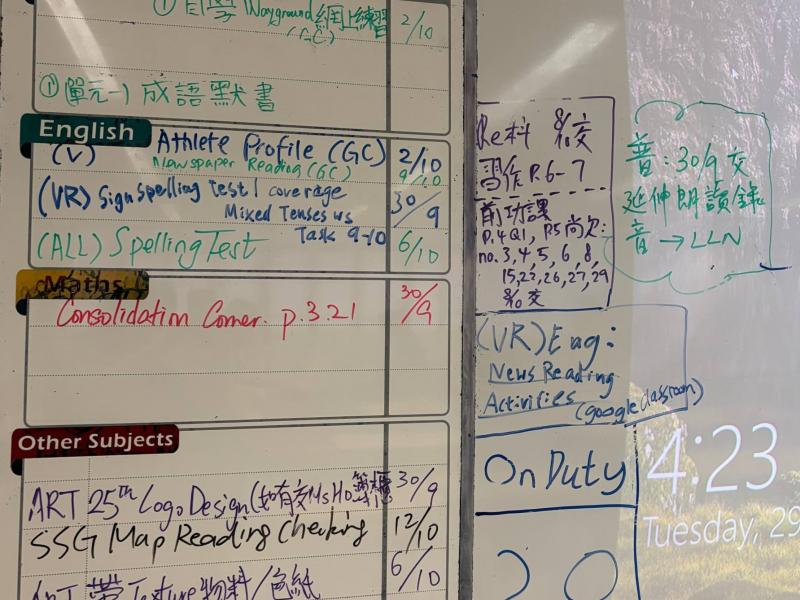 網上練習
(GC)
2/10
①(單元一) 成語默書
English
(V) Athlete Profile (GC) 2/10
Newspaper Reading (GC) 9/10
(VR) Sign spelling test 1 coverage 30/9
Mixed Tenses ws
Task 9-10
(ALL) Spelling Test 6/10
Maths
Consolidation Corner. p.3.21 30/9
Other Subjects
ART 25th Logo Design (如有交Ms Ho 30/9
SSG Map Reading Checking 12/10
ART 帶 Texture 物料/色紙 6/10
科 8/10交
習作 P.6-7
前功課
P.4 Q1, P.5 尚欠:
no. 3, 4, 5, 6, 8,
15, 22, 26, 27, 29
8/10 交
(VR) Eng:
News Reading
Activities (google classroom)
On Duty
20
普: 30/9 交
延伸朗讀錄
音 → LLN
4:23
Tuesday, 29